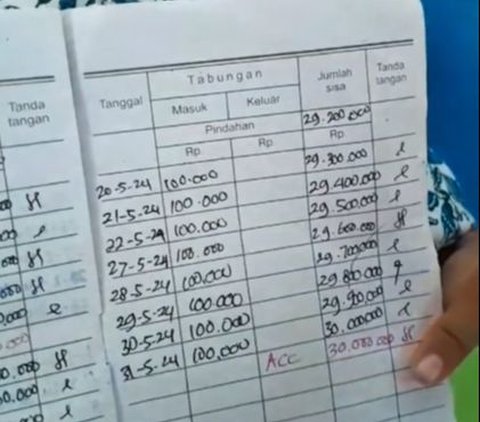 Tanda
tangan
Tanggal
Tabungan
Jumlah
sisa
Tanda
tangan
Masuk
Keluar
Pindahan
29.200.000
Rp
Rp
Rp
20-5-24 100.000 29.300.000
21-5-24 100.000 29.400.000
22-5-24 100.000 29.500.000
27-5-24 100.000 29.600.000
28-5-24 100,000 29.700.000
29-5-24 100.000 29.800.000
30-5-24 100.000 29.900.000
31-5-24 100,000 30.000.000
ACC 30.000.000